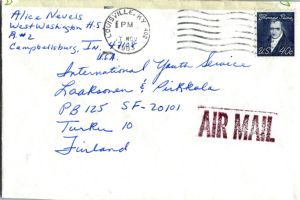 Alice Nevels
West Washington H.S
R.#2
Campbellsburg, In. 47108
U.S.A.
LOUISVILLE, KY
PM
NOV
U.S. 40c
International Youth Service
Laaksonen & Pirkkala
PB 125 SF-20101
Turku 10
Finland
AIR MAIL